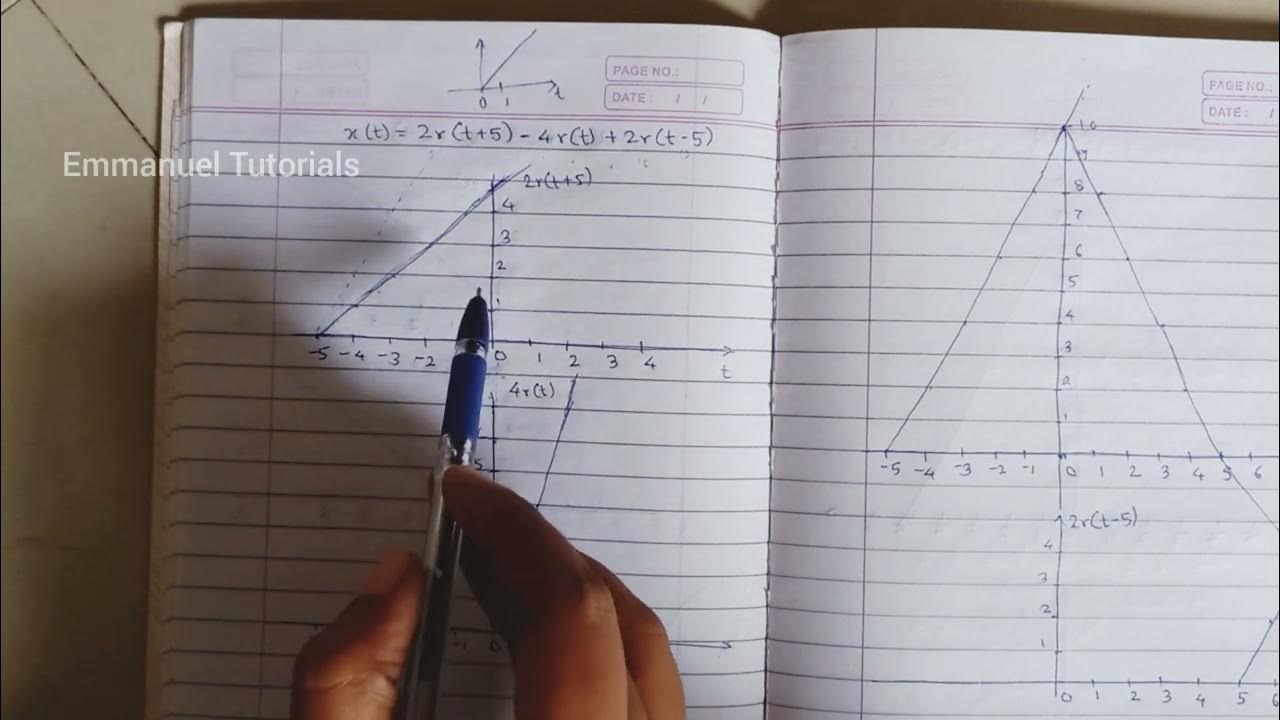 PAGE NO.:
DATE : / /
0 1 t
x(t) = 2r(t+5) - 4r(t) + 2r(t-5)
Emmanuel Tutorials
2r(t+5)
4
3
2
1
-5 -4 -3 -2 0 1 2 3 4
t
4r(t)
5
-1 0
PAGE NO.:
DATE : /
10
9
8
7
6
5
4
3
2
1
-5 -4 -3 -2 -1 0 1 2 3 4 5 6
2r(t-5)
4
3
2
1
0 1 2 3 4 5 6